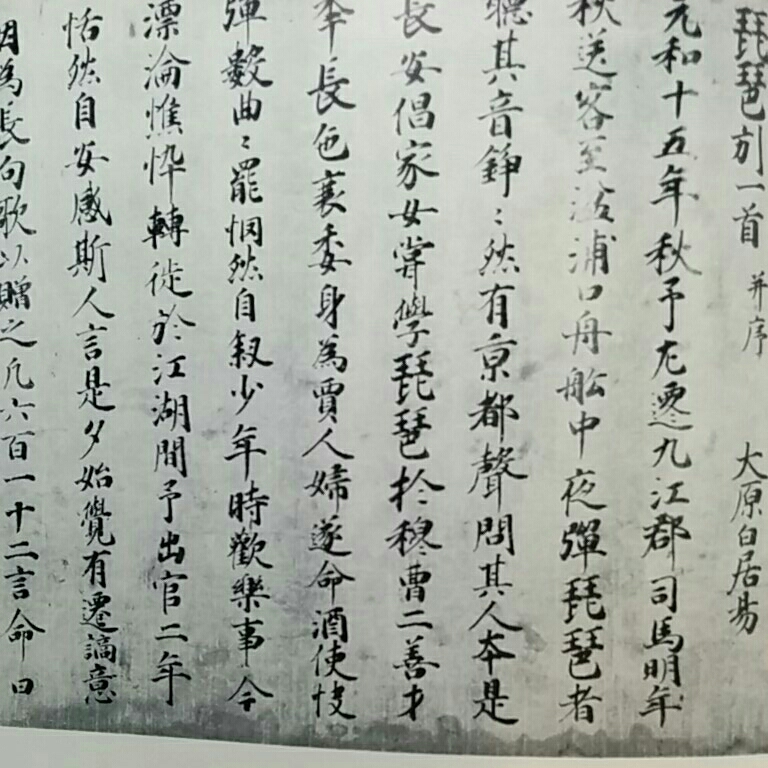 琵琶引一首 并序 大原白居易
元和十五年秋予左遷九江郡司馬明年
秋送客至湓浦口舟舩中夜彈琵琶者
聽其音錚〻然有京都聲問其人夲是
長安倡家女甞學琵琶於穆曹二善才
年長色衰委身為賈人婦遂命酒使快
彈數曲〻罷憫然自叙少年時歡樂事今
漂淪憔悴轉徙於江湖間予出官二年
恬然自安感斯人言是夕始覺有遷謫意
因為長句歌以贈之凡六百一十二言命曰